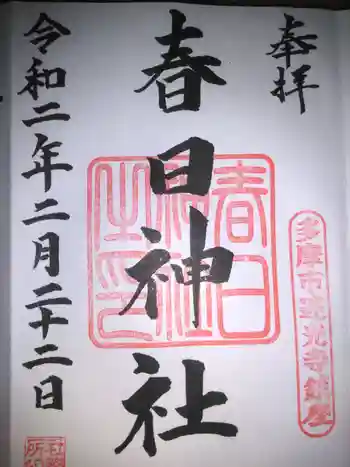 奉拝
春日神社
令和二年二月二十二日
春日
神社
之印
多摩市連光寺鎮座